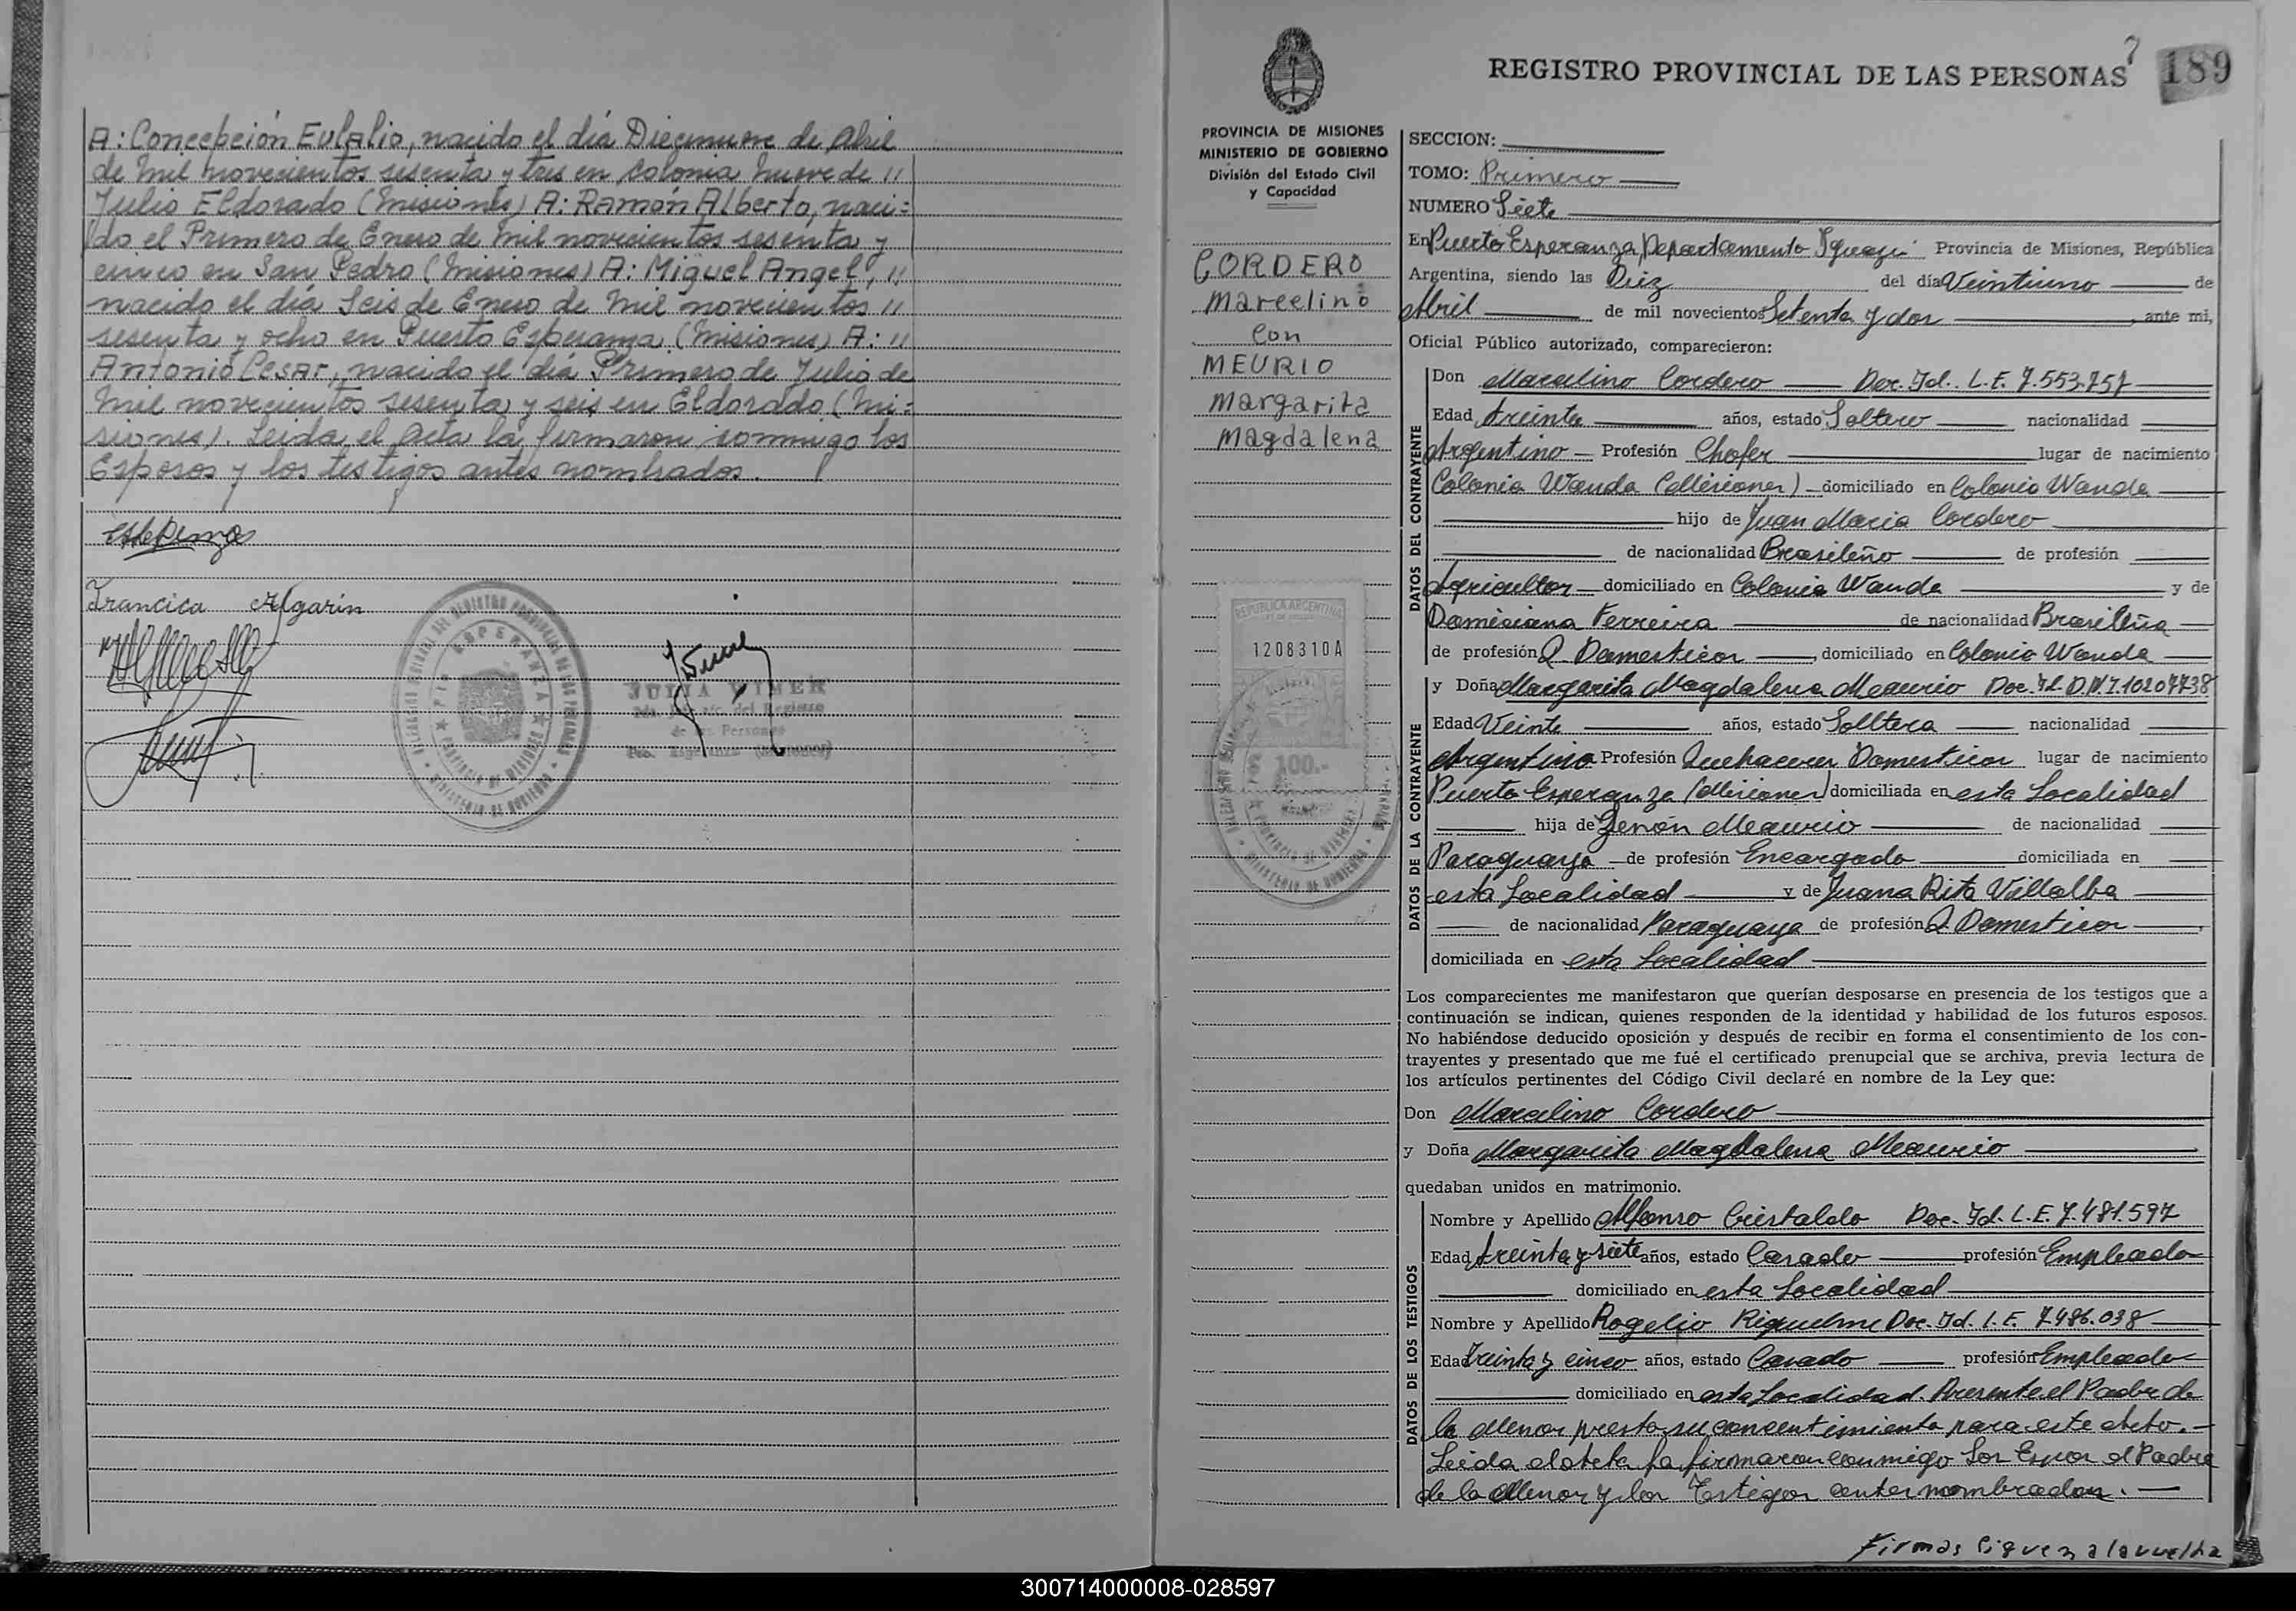 A: Concepción Eulalio, nacido el día Diecinueve de Abril
de mil novecientos sesenta y tres en Colonia Nueve de //
Julio Eldorado (Misiones) A: Ramón Alberto, naci=
do el Primero de Enero de mil novecientos sesenta y
cinco en San Pedro (Misiones) A: Miguel Angel, //
nacido el día Seis de Enero de mil novecientos //
sesenta y ocho en Puerto Esperanza (Misiones) A: //
Antonio Cesar, nacido el día Primero de Julio de
mil novecientos sesenta y seis en Eldorado (Mi=
siones). Leida el acta la firmaron conmigo los
Esposos y los testigos antes nombrados.
Francica Algarin
JULIA WIMER
del Registro
de las Personas
Pto. Esperanza (Misiones)
REGISTRO PROVINCIAL DE LAS PERSONAS
7
189
PROVINCIA DE MISIONES
MINISTERIO DE GOBIERNO
División del Estado Civil
y Capacidad
CORDERO
Marcelino
Con
MEURIO
Margarita
Magdalena
REPUBLICA ARGENTINA
1208310A
100.-
SECCION:
TOMO: Primero
NUMERO Siete
En Puerto Esperanza, Departamento Iguazú Provincia de Misiones, República
Argentina, siendo las Diez del día Veintiuno de
Abril de mil novecientos Setenta y dos, ante mi,
Oficial Público autorizado, comparecieron:
DATOS DEL CONTRAYENTE
Don Marcelino Cordero Doc. Id. L.E. 7.553.757
Edad treinta años, estado Soltero nacionalidad
Argentino Profesión Chofer lugar de nacimiento
Colonia Wanda (Misiones) domiciliado en Colonia Wanda
hijo de Juan Maria Cordero
de nacionalidad Brasileño de profesión
Agricultor domiciliado en Colonia Wanda y de
Damiciana Ferreira de nacionalidad Brasileña
de profesión Q. Domesticos, domiciliado en Colonia Wanda
DATOS DE LA CONTRAYENTE
y Doña Margarita Magdalena Meaurio Doc. Id. D.N.I. 10207738
Edad Veinte años, estado Solltera nacionalidad
Argentina Profesión Quehaceres Domesticos lugar de nacimiento
Puerto Esperanza (Misiones) domiciliada en esta Localidad
hija de Zenón Meaurio de nacionalidad
Paraguaya de profesión Encargado domiciliada en
esta Localidad y de Juana Rita Villalba
de nacionalidad Paraguaya de profesión Q. Domesticos,
domiciliada en esta Localidad
Los comparecientes me manifestaron que querían desposarse en presencia de los testigos que a
continuación se indican, quienes responden de la identidad y habilidad de los futuros esposos.
No habiéndose deducido oposición y después de recibir en forma el consentimiento de los con-
trayentes y presentado que me fué el certificado prenupcial que se archiva, previa lectura de
los artículos pertinentes del Código Civil declaré en nombre de la Ley que:
Don Marcelino Cordero
y Doña Margarita Magdalena Meaurio
quedaban unidos en matrimonio.
DATOS DE LOS TESTIGOS
Nombre y Apellido Alfonso Cristaldo Doc. Id. L.E. 7.481.597
Edad treinta y siete años, estado Casado profesión Empleado
domiciliado en esta Localidad
Nombre y Apellido Rogelio Riquelme Doc. Id. L.E. 7.486.038
Edad Treinta y cinco años, estado Casado profesión Empleado
domiciliado en esta Localidad. Presente el Padre de
la Menor presta su concentimiento para este Acto.-
Leida el Acta la firmaron conmigo los Espos el Padre
de la Menor y los Testigos antes nombrados.
Firmas siguen a la vuelta
300714000008-028597